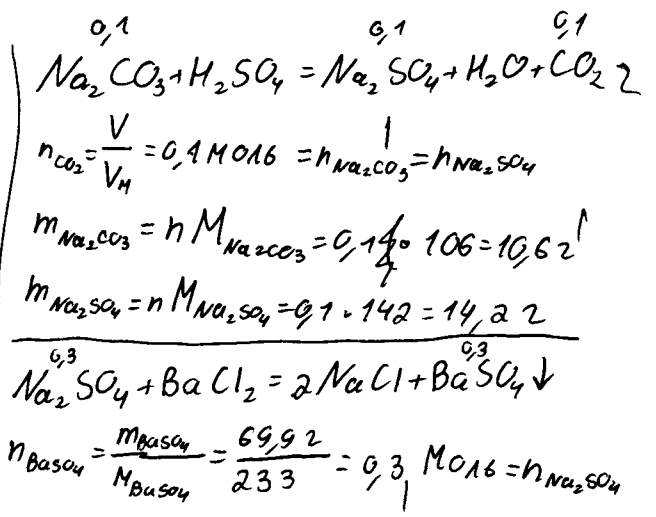 0,1 0,1 0,1
Na₂CO₃+H₂SO₄=Na₂SO₄+H₂O+CO₂ ↑
n_CO₂ = V/V_M = 0,1 моль = n_Na₂CO₃ = n_Na₂SO₄
m_Na₂CO₃ = n M_Na₂CO₃ = 0,1 · 106 = 10,6 г
m_Na₂SO₄ = n M_Na₂SO₄ = 0,1 · 142 = 14,2 г
0,3 0,3
Na₂SO₄ + BaCl₂ = 2NaCl + BaSO₄↓
n_BaSO₄ = m_BaSO₄/M_BaSO₄ = 69,9 г/233 = 0,3 моль = n_Na₂SO₄